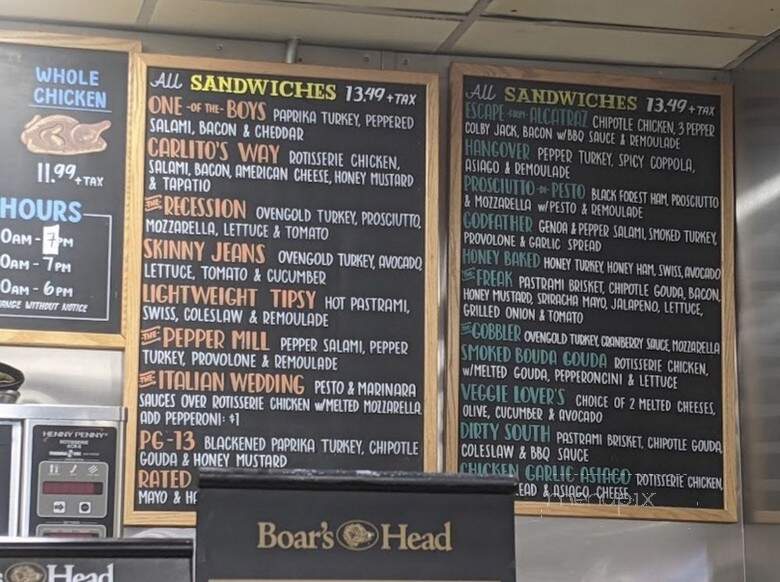 WHOLE
CHICKEN
11.99 +TAX
HOURS
0AM - 7PM
0AM - 7PM
0AM - 6PM
ANGE WITHOUT NOTICE
All SANDWICHES 13.49 +TAX
ONE -OF THE- BOYS PAPRIKA TURKEY, PEPPERED
SALAMI, BACON & CHEDDAR
CARLITO'S WAY ROTISSERIE CHICKEN,
SALAMI, BACON, AMERICAN CHEESE, HONEY MUSTARD
& TAPATIO
THE RECESSION OVENGOLD TURKEY, PROSCIUTTO,
MOZZARELLA, LETTUCE & TOMATO
SKINNY JEANS OVENGOLD TURKEY, AVOCADO,
LETTUCE, TOMATO & CUCUMBER
LIGHTWEIGHT TIPSY HOT PASTRAMI,
SWISS, COLESLAW & REMOULADE
THE PEPPER MILL PEPPER SALAMI, PEPPER
TURKEY, PROVOLONE & REMOULADE
THE ITALIAN WEDDING PESTO & MARINARA
SAUCES OVER ROTISSERIE CHICKEN w/MELTED MOZZARELLA.
ADD PEPPERONI: $1
PG-13 BLACKENED PAPRIKA TURKEY, CHIPOTLE
GOUDA & HONEY MUSTARD
RATED
MAYO & HO
All SANDWICHES 13.49 +TAX
ESCAPE FROM ALCATRAZ CHIPOTLE CHICKEN, 3 PEPPER
COLBY JACK, BACON w/BBQ SAUCE & REMOULADE
HANGOVER PEPPER TURKEY, SPICY COPPOLA,
ASIAGO & REMOULADE
PROSCIUTTO PESTO BLACK FOREST HAM, PROSCIUTTO
& MOZZARELLA w/PESTO & REMOULADE
GODFATHER GENOA & PEPPER SALAMI, SMOKED TURKEY,
PROVOLONE & GARLIC SPREAD
HONEY BAKED HONEY TURKEY, HONEY HAM, SWISS, AVOCADO
THE FREAK PASTRAMI BRISKET, CHIPOTLE GOUDA, BACON,
HONEY MUSTARD, SRIRACHA MAYO, JALAPENO, LETTUCE,
GRILLED ONION & TOMATO
THE GOBBLER OVENGOLD TURKEY, CRANBERRY SAUCE, MOZZARELLA
SMOKED BOUDA GOUDA ROTISSERIE CHICKEN,
w/MELTED GOUDA, PEPPERONCINI & LETTUCE
VEGGIE LOVER'S CHOICE OF 2 MELTED CHEESES,
OLIVE, CUCUMBER & AVOCADO
DIRTY SOUTH PASTRAMI BRISKET, CHIPOTLE GOUDA,
COLESLAW & BBQ SAUCE
CHICKEN GARLIC ASIAGO ROTISSERIE CHICKEN,
EAD & ASIAGO CHEESE
menupix
HENNY PENNY
Boar's Head
Head